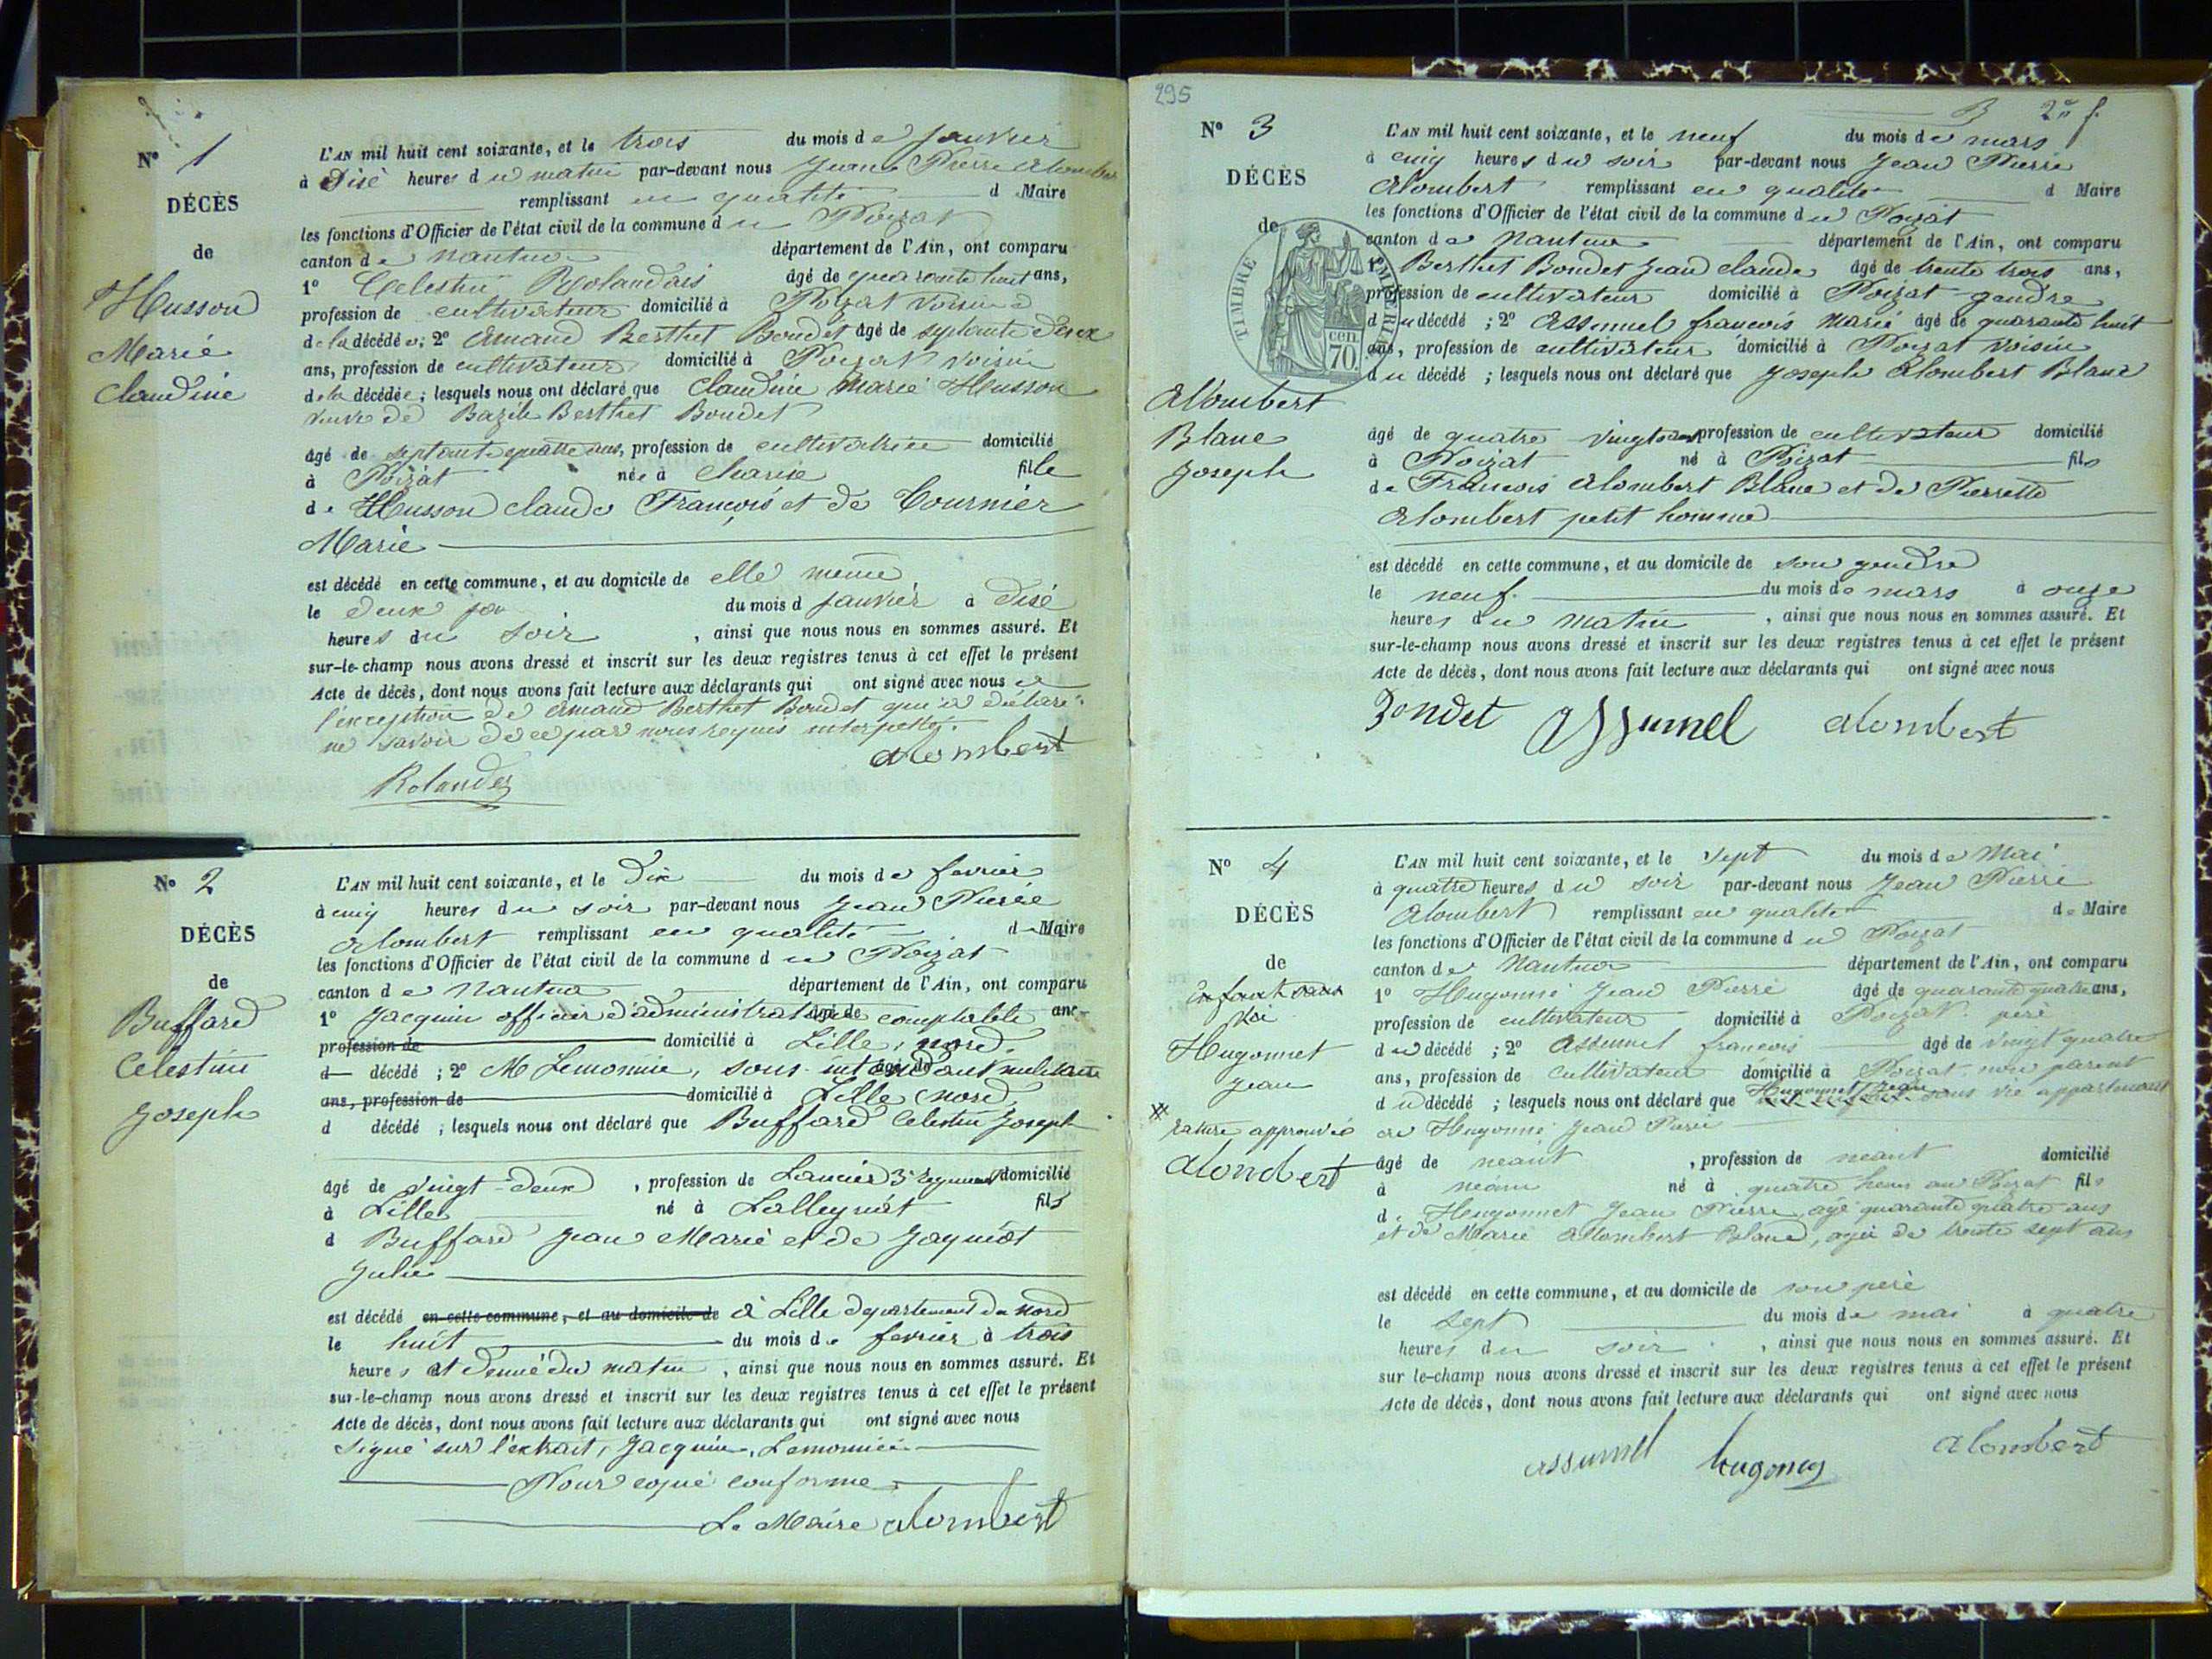 N° 1
DÉCÈS
de
Husson
Marie
Claudine
L'AN mil huit cent soixante, et le trois du mois de Janvier
à disé heures du matin par-devant nous Jean Pierre Alombert
remplissant en qualité d Maire
les fonctions d'Officier de l'état civil de la commune du Poizat
canton de Nantua département de l'Ain, ont comparu
1° Celestin Rolandais âgé de quarante huit ans,
profession de cultivateur domicilié à Poizat voisin
de la décédée; 2° Armand Berthet Bondet âgé de septante deux
ans, profession de cultivateur domicilié à Poizat voisin
de la décédée; lesquels nous ont déclaré que Claudine Marie Husson
veuve de Bazile Berthet Bondet
âgé de septante quatre ans, profession de cultivatrice domicilié
à Poizat née à Charix fille
de Husson claude François et de Tournier
Marie
est décédé en cette commune, et au domicile de elle meme
le deux du mois d Janvier à disé
heures du soir, ainsi que nous nous en sommes assuré. Et
sur-le-champ nous avons dressé et inscrit sur les deux registres tenus à cet effet le présent
Acte de décès, dont nous avons fait lecture aux déclarants qui ont signé avec nous
l'exception de Armand Berthet Bondet qui a déclaré
ne savoir de ce par nous requis interpellé.
Alombert
Rolandez
N° 2
DÉCÈS
de
Buffard
Celestin
Joseph
L'AN mil huit cent soixante, et le Dix du mois de fevrier
à cinq heures du soir par-devant nous Jean Pierre
Alombert remplissant en qualité de Maire
les fonctions d'Officier de l'état civil de la commune du Poizat
canton de Nantua département de l'Ain, ont comparu
1° Jacquin officier d'administration âgé de comptable ans
profession de domicilié à Lille, nord.
d décédé; 2° M Lemonnie, sous-intendant militaire âgé de
ans, profession de domicilié à Lille nord
d décédé; lesquels nous ont déclaré que Buffard Celestin Joseph
âgé de vingt-deux, profession de Lancier 3e regiment domicilié
à Lille né à Lalleyriat fils
d Buffard Jean Marie et de Jaquiot
Julie
est décédé en cette commune, et au domicile de à Lille departement du nord
le huit du mois de fevrier à trois
heures et demie du matin, ainsi que nous nous en sommes assuré. Et
sur-le-champ nous avons dressé et inscrit sur les deux registres tenus à cet effet le présent
Acte de décès, dont nous avons fait lecture aux déclarants qui ont signé avec nous
Signé sur l'extrait, Jacquin, Lemonnier
Pour copie conforme
Le Maire Alombert
295
3 2e f.
N° 3
DÉCÈS
de
TIMBRE IMPÉRIAL
70 CEN.
Alombert
Blanc
Joseph
L'AN mil huit cent soixante, et le neuf du mois de mars
à cinq heures du soir par-devant nous Jean Pierre
Alombert remplissant en qualité d Maire
les fonctions d'Officier de l'état civil de la commune du Poizat
canton de Nantua département de l'Ain, ont comparu
1° Berthet Bondet Jean claude âgé de trente trois ans,
profession de cultivateur domicilié à Poizat gendre
du décédé; 2° Assumel françois Marie âgé de quarante huit
ans, profession de cultivateur domicilié à Poizat voisin
du décédé; lesquels nous ont déclaré que Joseph Alombert Blanc
âgé de quatre vingts ans profession de cultivateur domicilié
à Poizat né à Poizat fils
de François Alombert Blanc et de Pierrette
Alombert petit homme
est décédé en cette commune, et au domicile de son gendre
le neuf du mois de mars à onze
heures du matin, ainsi que nous nous en sommes assuré. Et
sur-le-champ nous avons dressé et inscrit sur les deux registres tenus à cet effet le présent
Acte de décès, dont nous avons fait lecture aux déclarants qui ont signé avec nous
Bondet Assumel Alombert
N° 4
DÉCÈS
de
enfant sans
vie
Hugonnet
Jean
rature approuvée
Alombert
L'AN mil huit cent soixante, et le sept du mois de Mai
à quatre heures du soir par-devant nous Jean Pierre
Alombert remplissant en qualité de Maire
les fonctions d'Officier de l'état civil de la commune du Poizat
canton de Nantua département de l'Ain, ont comparu
1° Hugonné Jean Pierre âgé de quarante quatre ans,
profession de cultivateur domicilié à Poizat père
du décédé; 2° Assumel françois âgé de vingt quatre
ans, profession de cultivateur domicilié à Poizat non parent
du décédé; lesquels nous ont déclaré que Hugonnet Jean sans vie appartenant
à Hugonné Jean Pierre
âgé de neant, profession de neant domicilié
à neant né à quatre heures au Poizat fils
de Hugonnet Jean Pierre, agé quarante quatre ans
et de Marie Alombert Blanc, agée de trente sept ans
est décédé en cette commune, et au domicile de son père
le sept du mois de mai à quatre
heures du soir, ainsi que nous nous en sommes assuré. Et
sur le-champ nous avons dressé et inscrit sur les deux registres tenus à cet effet le présent
Acte de décès, dont nous avons fait lecture aux déclarants qui ont signé avec nous
assumel hugoney Alombert